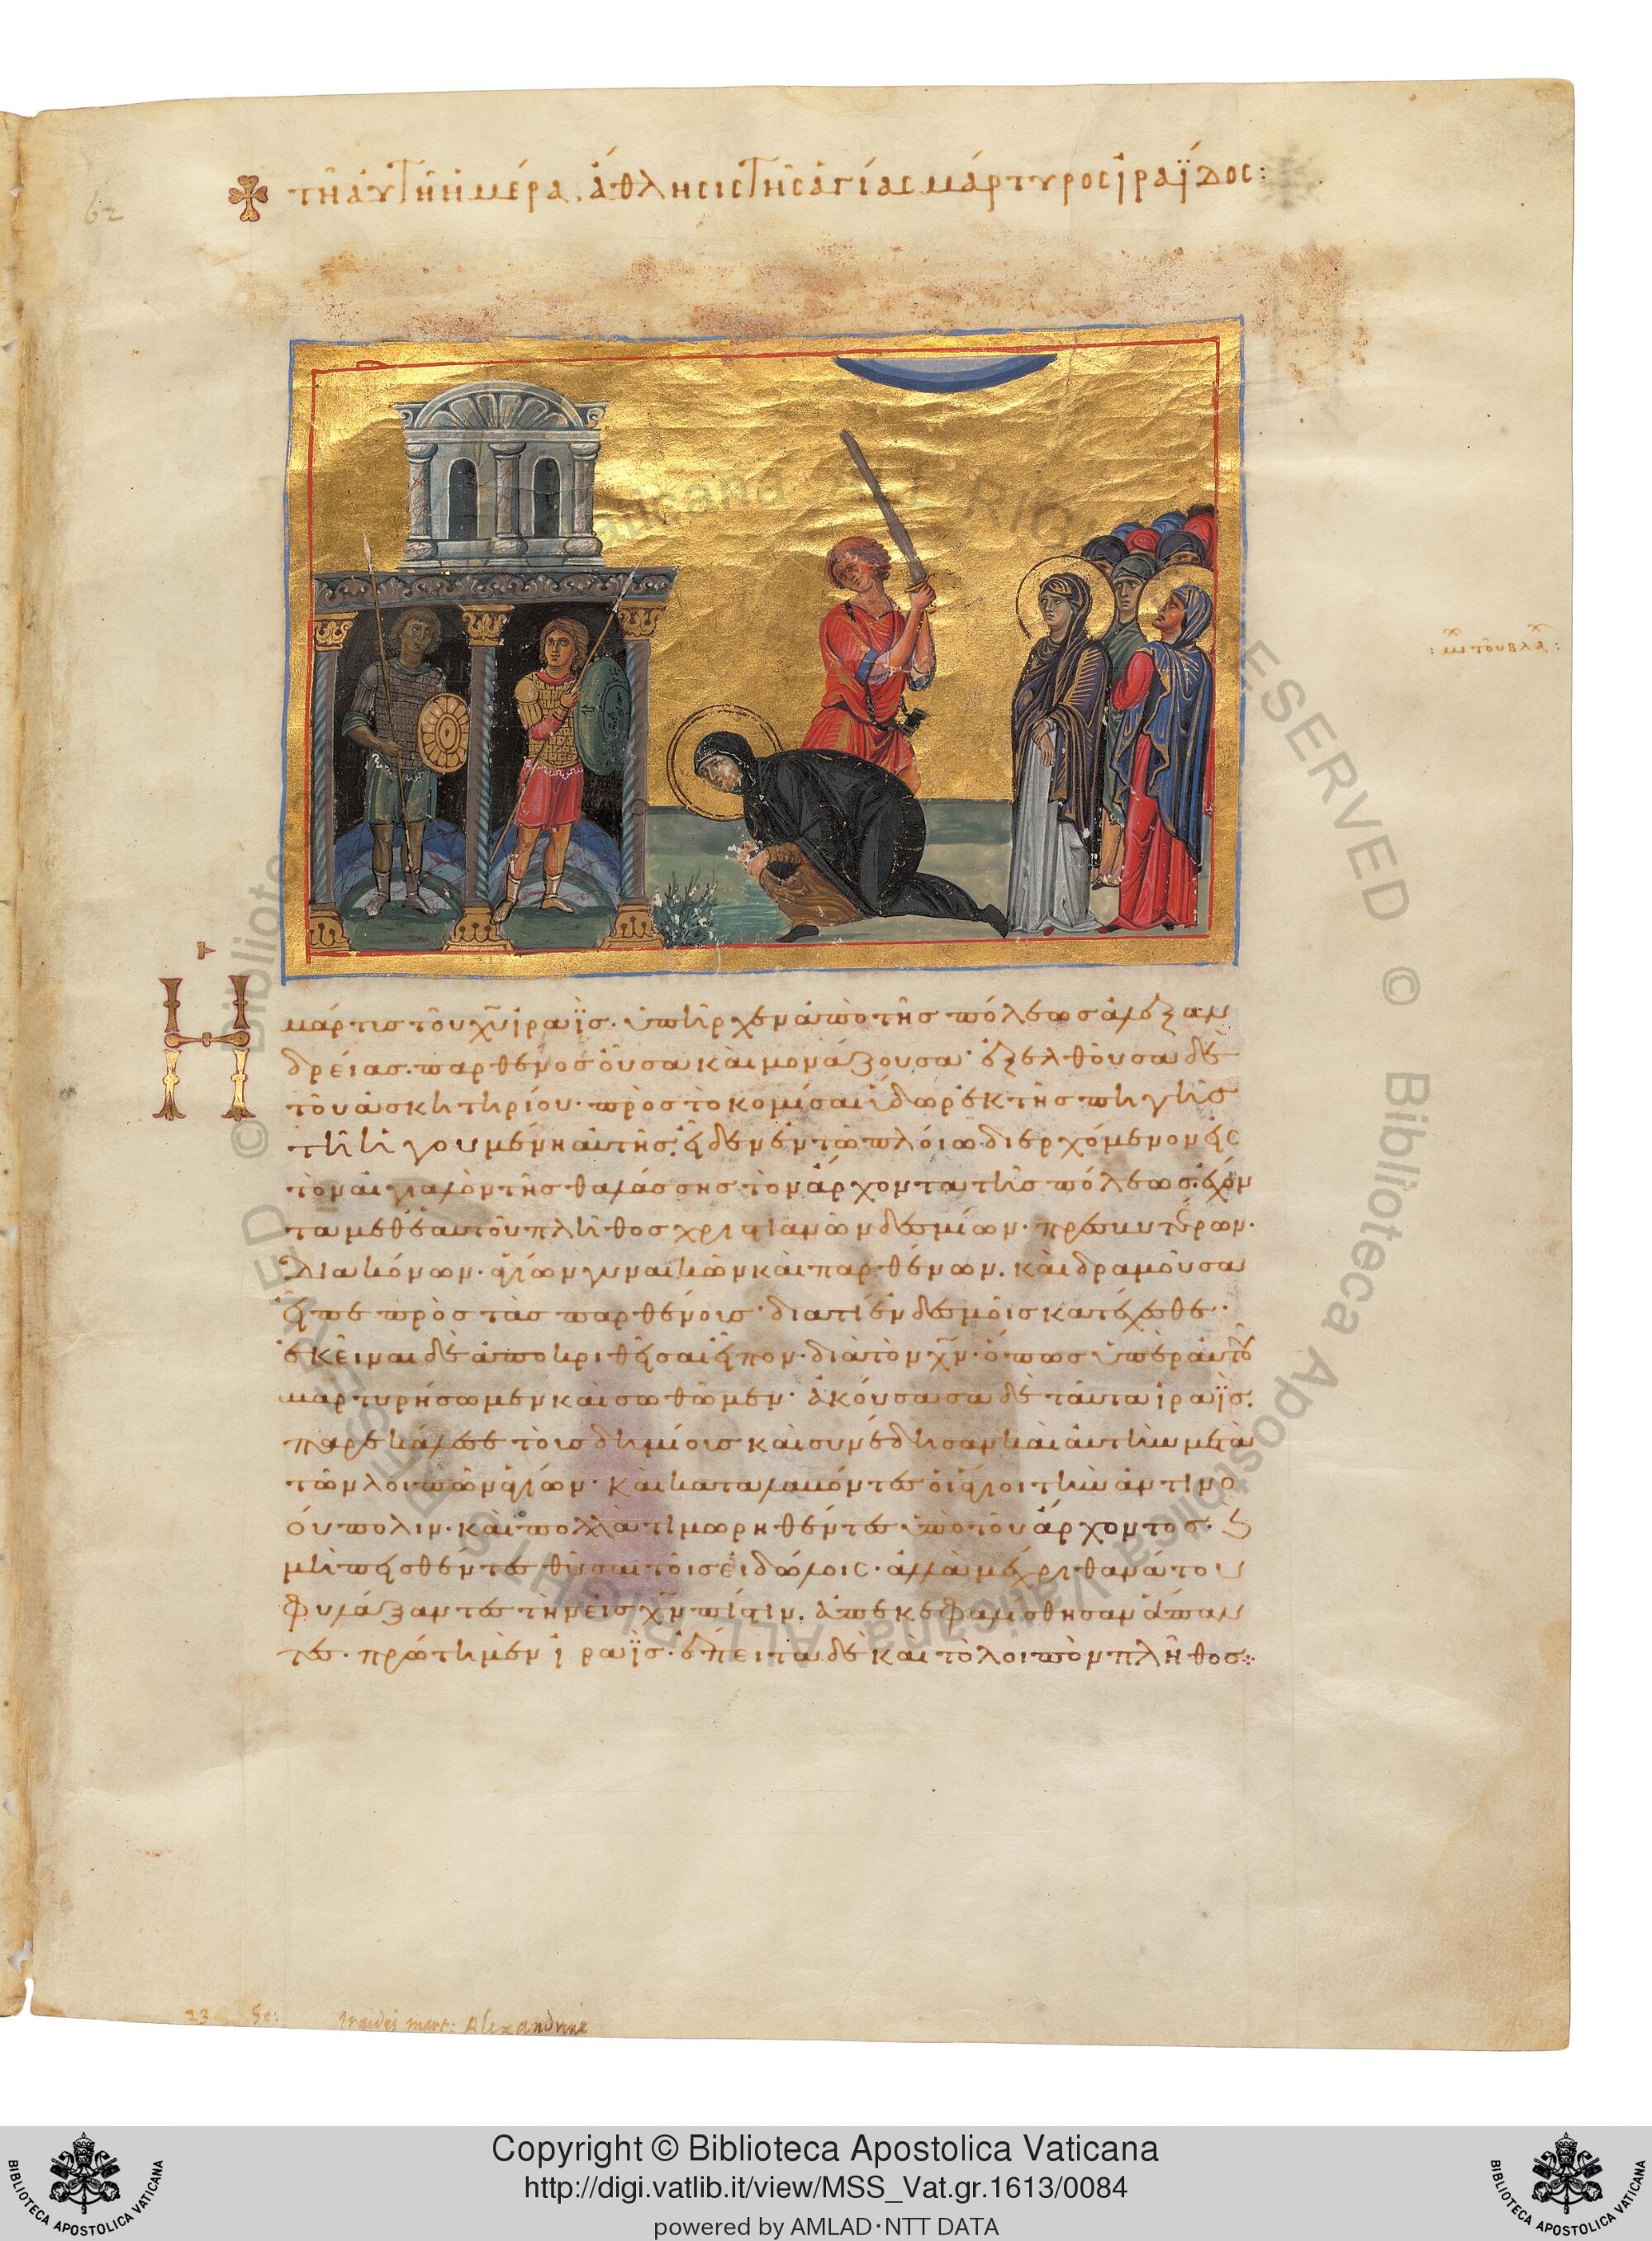 62
τῇ αὐτῇ ἡμέρᾳ, ἄθλησις τῆς ἁγίας μάρτυρος ἰραΐδος:
Ἡ μάρτυς τοῦ χυ ἰραῒς· ὑπῆρχεν ἀπὸ τῆς πόλεως ἀλεξαν
δρείας· παρθένος οὖσα καὶ μονάζουσα· ἐξελθοῦσα δὲ
τοῦ ἀσκητηρίου· πρὸς τὸ κομίσαι ὕδωρ ἐκ τῆς πηγῆς
τῇ ἡγουμένη αὐτῆς· εἶδεν ἐν τῶ πλοίω διερχόμενον εἰς
τὸν αἰγιαλὸν τῆς θαλάσσης τὸν ἄρχοντα τῆς πόλεως· ἔχον
τα μεθ ἑαυτοῦ πλῆθος χριστιανῶν δεσμίων· πρεσβυτέρων·
διακόνων· ἁγίων γυναικῶν καὶ παρθένων. καὶ δραμοῦσα
εἶπε πρὸς τὰς παρθένοις· διατί ἐν δεσμοῖς κατέχεσθε·
ἐκεῖναι δὲ ἀποκριθεῖσαι εἶπον· διὰ τὸν χν· ὅπως ὑπὲρ αὐτοῦ
μαρτυρήσωμεν καὶ σωθῶμεν· ἀκούσασα δὲ ταῦτα ἰραῒς.
παρεκάλεσε τοῖς δημίοις καὶ συνέδησαν καὶ αὐτὴν μετὰ
τῶν λοιπῶν ἁγίων· καὶ καταλαβόντες οἱ ἅγιοι τὴν ἀντινο
ούπολιν· καὶ πολλὰ τιμωρηθέντες ὑπὸ τοῦ ἄρχοντος· ϛ
μὴ πεισθέντες θῦσαι τοῖς εἰδώλοις· ἀλλὰ μέχρι θανάτου
φυλάξαντες τὴν εἰς χν πίστιν. ἀπεκεφαλίσθησαν ἅπαν
τες· πρώτη μὲν ἰραῒς· ἔπειτα δὲ καὶ τὸ λοιπὸν πλῆθος:·
23 Iraidis mart: Alexandrinę
© Biblioteca Apostolica Vaticana ALL RIGHTS RESERVED
Copyright © Biblioteca Apostolica Vaticana
http://digi.vatlib.it/view/MSS_Vat.gr.1613/0084
powered by AMLAD·NTT DATA
BIBLIOTECA APOSTOLICA VATICANA
BIBLIOTECA APOSTOLICA VATICANA